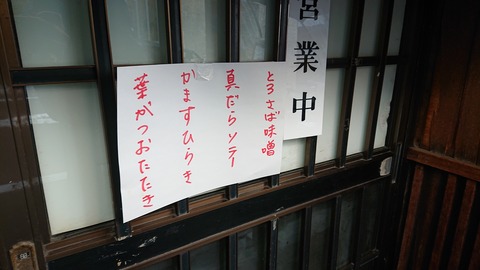 営業中
とろさば味噌
真だらソテー
かますひらき
葉がつおたたき